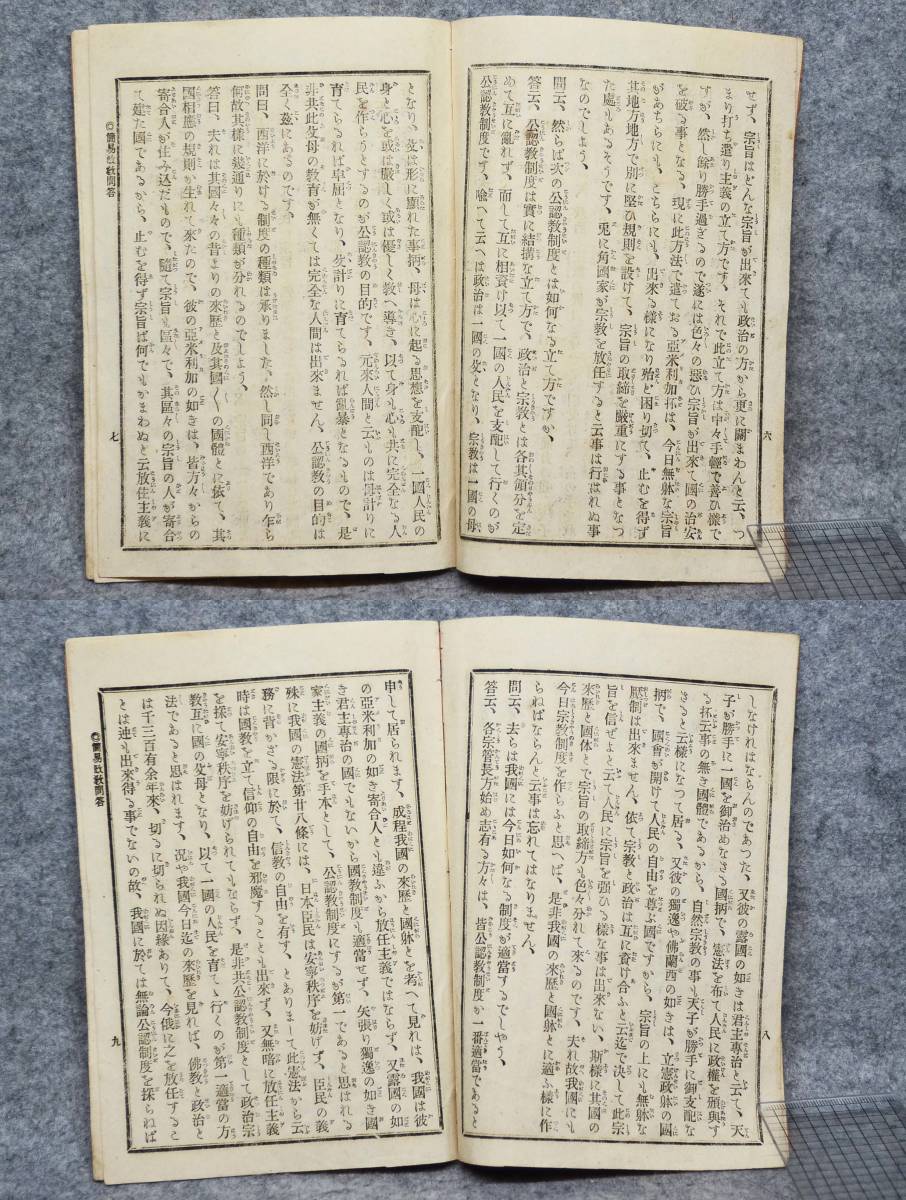 せず、宗旨はどんな宗旨が出來ても政治の方から更に關まわんと云、つ
まり打ち遣り主義の立て方です、それで此立て方は中々手輕で善ひ樣で
すが、然し餘り勝手過ぎるので遂には色々の惡ひ宗旨が出來て國の治安
を破る事となる、現に此方法で遣ておる亞米利加抔は、今日無躰な宗旨
があちらにも、こちらにも、出來る樣になり殆ど困り切て、止むを得ず
其地方地方で別に堅ひ規則を設けて、宗旨の取締を嚴重にする事となつ
た處もあるそうです、兎に角國家が宗教を放任すると云事は行はれぬ事
なのでしよう、
問云、然らば次の公認教制度とは如何なる立て方ですか、
答云、公認教制度は實に結搆な立て方で、政治と宗教とは各其領分を定
めて互に亂れず、而して互に相資け以て一國の人民を支配して行くのが
公認教制度です、喩へて云へは政治は一國の父となり、宗教は一國の母
六
となり、父は形に顯れた事柄、母は心に起る思想を支配し、一國人民の
身と心を或は嚴しく或は優しく教へ導き、以て身も心も共に完全なる人
民を作らうとするのが公認教の目的です、元來人間と云ものは母計りに
育てらるれば卑屈となり、父計りに育てらるれば亂暴となるもので、是
非共此父母の教育が無くては完全な人間は出來ません、公認教の目的は
全く茲にあるのです、
問曰、西洋に於ける制度の種類は承りました、然し同し西洋であり乍ら
何故其樣に幾通りにも種類が分れるのでしよう、
答曰、夫れは其國々々の昔よりの來歷と及其國〱の國體とに依て、其
國相應の規則が生れて來たので、彼の亞米利加の如きは、皆方々からの
寄合人が住み込だもので、隨て宗旨も區々で、其區々の宗旨の人が寄合
て建た國であるから、止むを得ず宗旨は何でもかまわぬと云放任主義に
◎簡易政教問答
七
しなければならんのであつた、又彼の露國の如きは君主專治と云て、天
子が勝手に一國を御治めなさる國柄で、憲法を布て人民に政權を頒與す
る抔云事の無き國體であるから、自然宗教の事も天子が勝手に御支配な
さると云樣になつて居る、又彼の獨逸や佛蘭西の如きは、立憲政躰の國
柄で、國會が開けて人民の自由を尊ぶ國ですから、宗旨の上にも無躰な
壓制は出來ません、依て宗教と政治は互に資け合ふと云迄で決して此宗
旨を信ぜよと云て人民に宗旨を强ひる樣な事は出來ない、斯樣に其國の
來歷と國体とで宗旨の取締方も色々分れて來るのです、夫れ故我國にも
今日宗教制度を作らふと思へば、是非我國の來歷と國躰とに適ふ樣に作
らねばならんと云事は忘れてはなりません、
問云、去らは我國には今日如何なる制度が適當するでしやう、
答云、各宗管長方始め志有る方々は、皆公認教制度か一番適當であると
八
申して居られます、成程我國の來歷と國躰とを考へて見れは、我國は彼
の亞米利加の如き寄合人とも違ふから放任主義ではならず、又露國の如
き君主專治の國でもないから國教制度も適當せず、矢張り獨逸の如き國
家主義の國柄を手本として、公認教制度にするが第一であると思はれる
殊に我國の憲法第廿八條には、日本臣民は安寧秩序を妨げず、臣民の義
務に背かざる限に於て、信教の自由を有す、とありまして此憲法から云
時は國教を立て信仰の自由を邪魔することも出來ず、又無暗に放任主義
を採て安寧秩序を妨げられてもならず、是非共公認教制度として政治宗
教互に國の父母となり、以て一國の人民を育てゝ行くのが第一適當の方
法であると思はれます、況や我國今日迄の來歷を見れば、佛教と政治と
は千三百有余年來、切るに切られぬ因緣ありて、今俄に之を放任するこ
とは迚も出來得る事でないの故、我國に於ては無論公認制度を採らねば
◎簡易政教問答
九